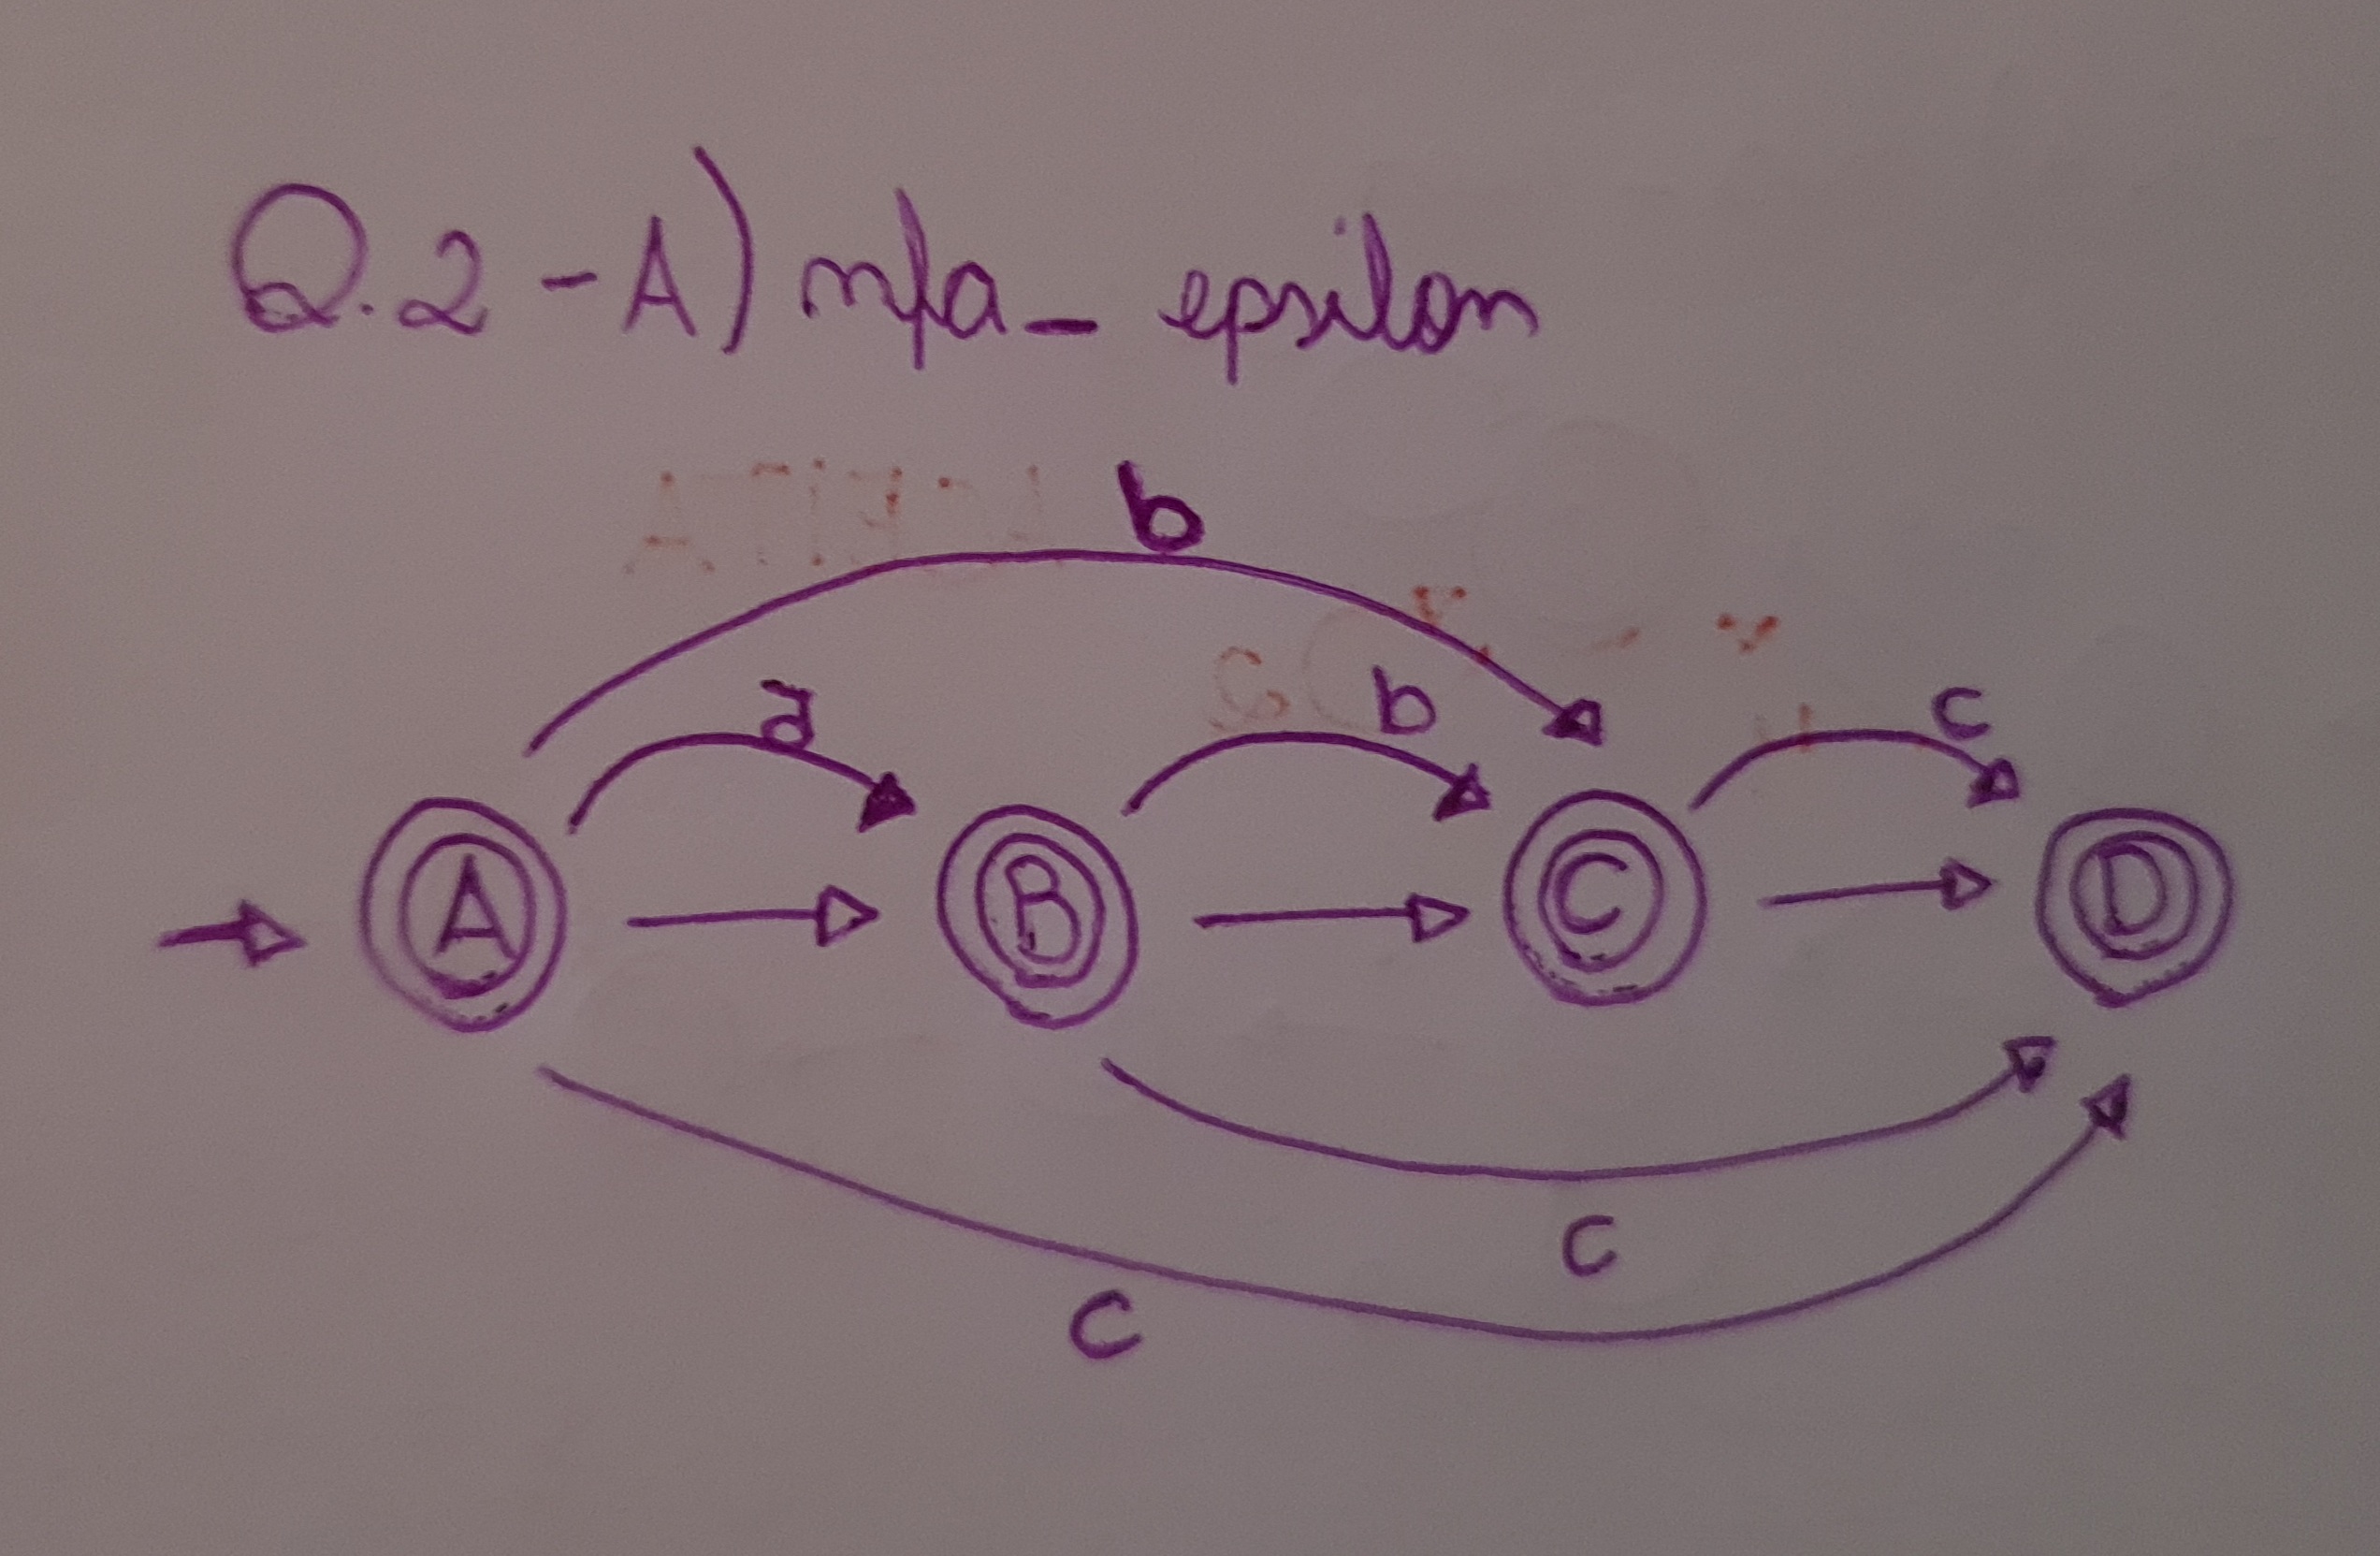 Q.2 - A) nfa_ epsilon
b
a b c
A B C D
c
c